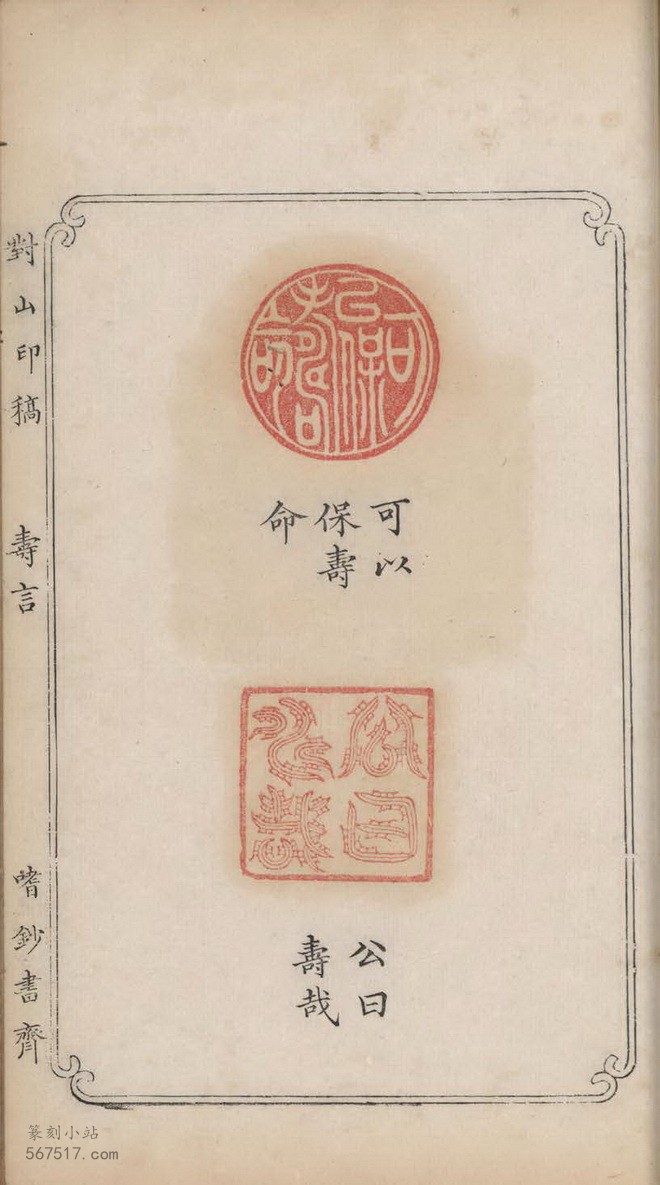 可以
保壽
命
公曰
壽哉
對山印稿 壽言 嗜鈔書齊
篆刻小站
567517.com